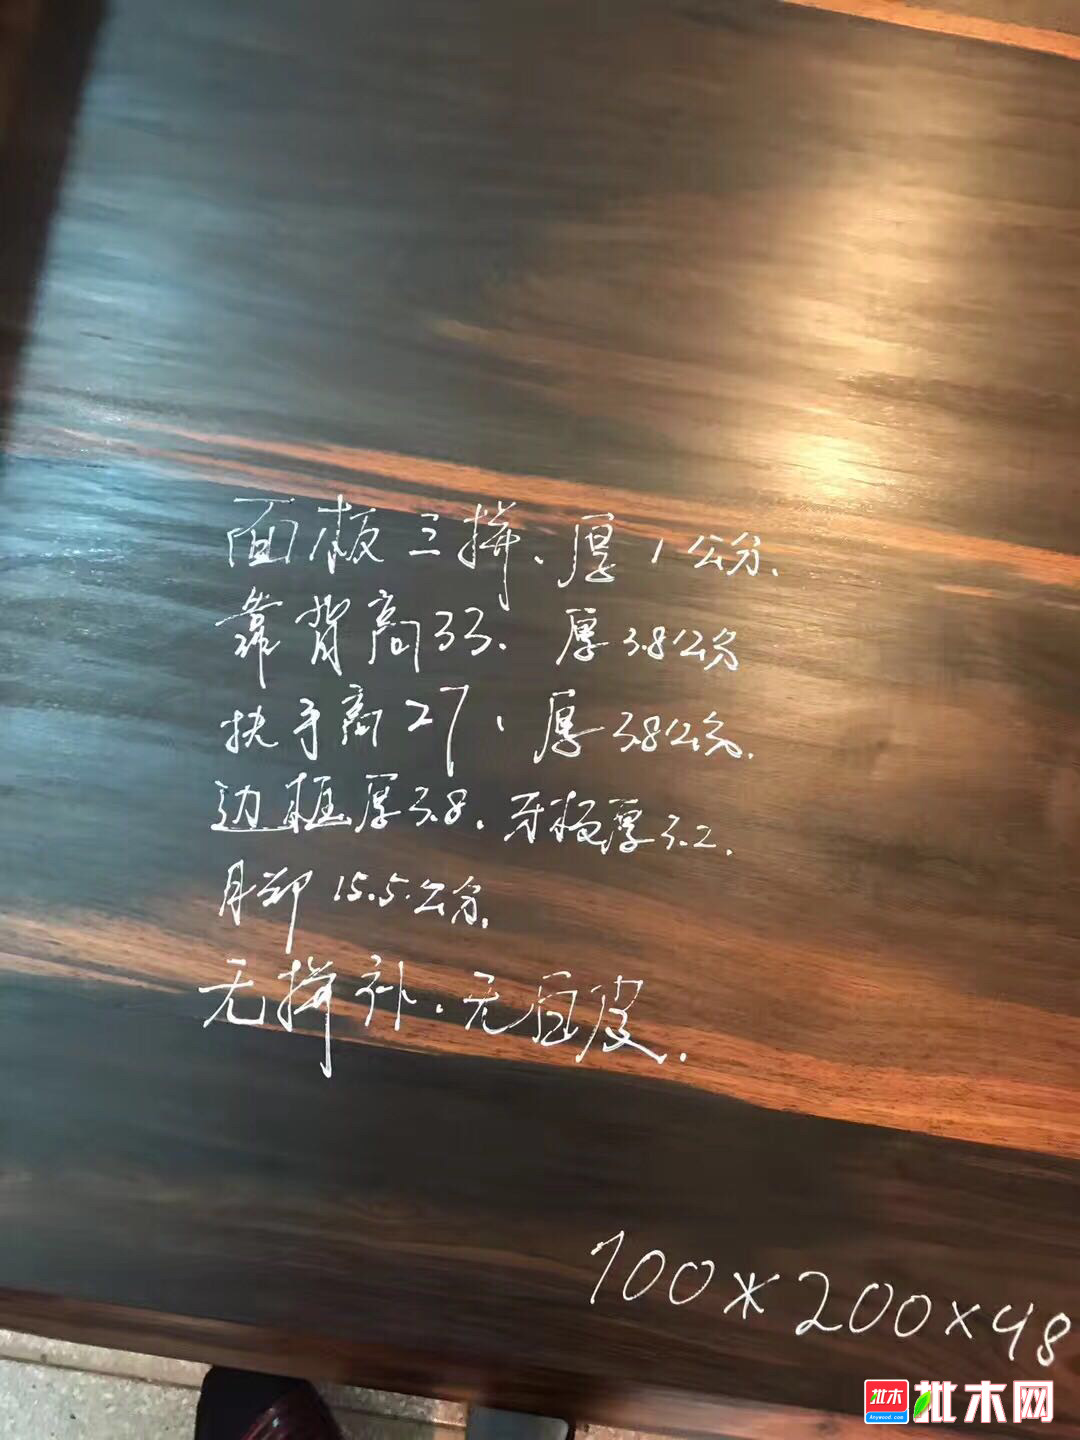 面板三拼、厚1公分.
靠背高33、厚3.8公分
扶手高27、厚3.8公分.
边框厚3.8.牙板厚3.2.
月郊15.5公分.
无拼补.无白皮.
100*200×48
批木
Anywood.com
批木网